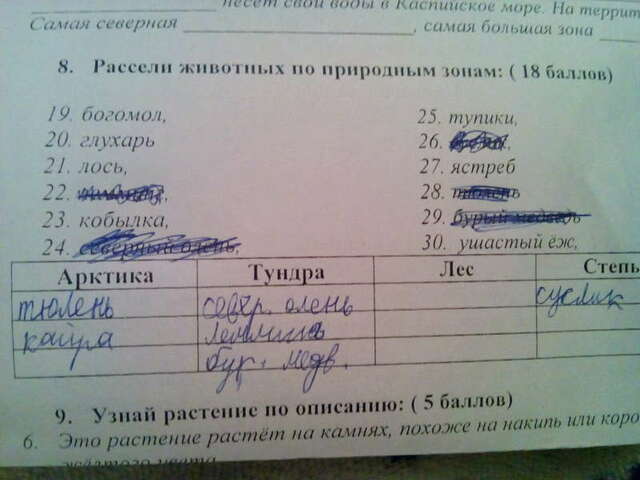 несёт свои воды в Каспийское море. На террит
Самая северная ____________, самая большая зона
8. Рассели животных по природным зонам: ( 18 баллов)
19. богомол,
20. глухарь
21. лось,
22.
23. кобылка,
24. северный олень,
25. тупики,
26.
27. ястреб
28. тюлень
29. бурый медведь
30. ушастый ёж,
Арктика Тундра Лес Степь
тюлень севр. олень суслик
кайра лемминь
бур. медв.
9. Узнай растение по описанию: ( 5 баллов)
6. Это растение растёт на камнях, похоже на накипь или коро
жёлтого цвета